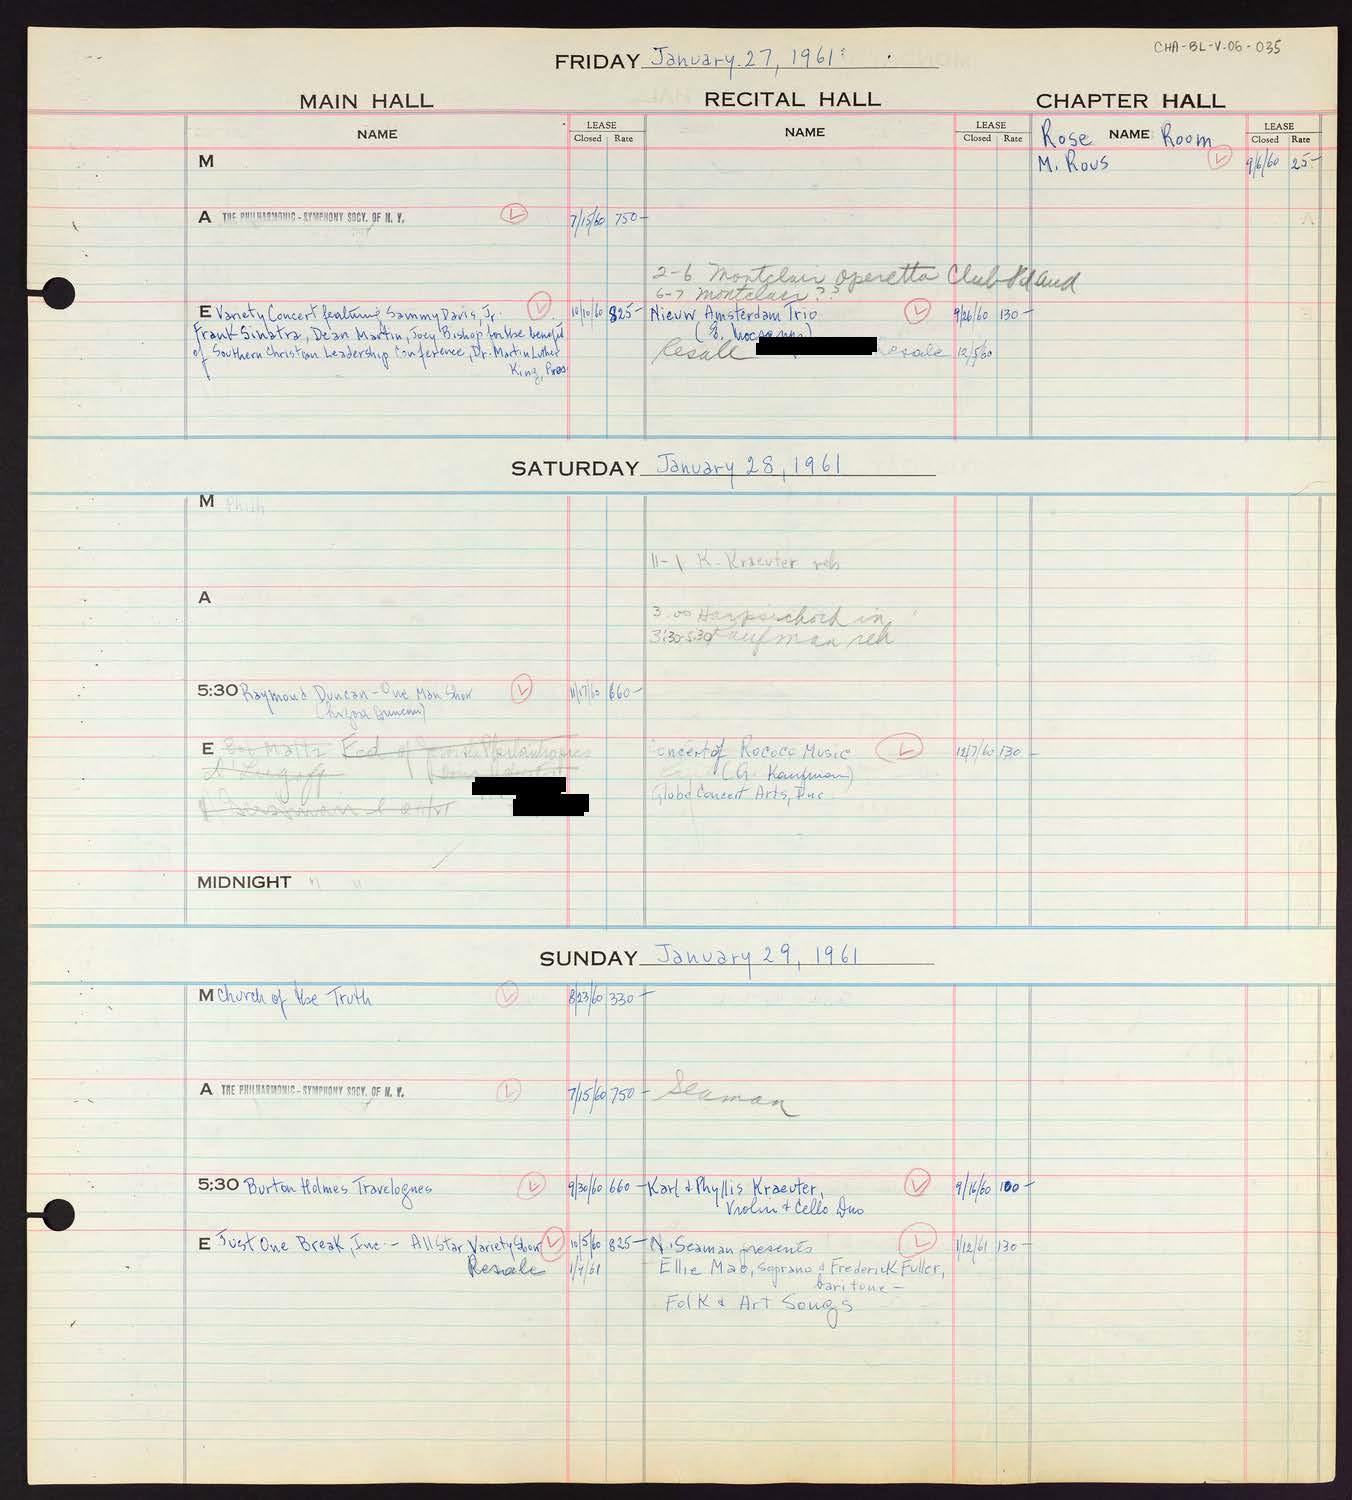 CHA-BL-V-06-035
FRIDAY January 27, 1961
MAIN HALL RECITAL HALL CHAPTER HALL
NAME LEASE Closed Rate NAME LEASE Closed Rate Rose NAME Room LEASE Closed Rate
M M. Rous 9/6/60 25-
A THE PHILHARMONIC-SYMPHONY SOCY. OF N. Y. 7/15/60 750-
2-6 Montclair Operetta Club
6-7 Montclair??
E Variety Concert featuring Sammy Davis, Jr. 10/10/60 825- Nieuw Amsterdam Trio 9/26/60 130-
Frank Sinatra, Dean Martin, Joey Bishop for the benefit
of Southern Christian Leadership Conference, Dr. Martin Luther Resale Resale 12/5/60
King, Pres.
SATURDAY January 28, 1961
M Philh
11-1 K. Kraeuter reh
A
3:00 Harpsichord in
3:30-5:30 Kaufman reh
5:30 Raymond Duncan-One Man Show 11/17/60 660-
E Concert of Rococo Music 12/7/60 130-
(G. Kaufman)
Globe Concert Arts, Inc
MIDNIGHT " "
SUNDAY January 29, 1961
M Church of the Truth 8/23/60 330-
A THE PHILHARMONIC-SYMPHONY SOCY. OF N. Y. 7/15/60 750- Seaman
5:30 Burton Holmes Travelogues 9/30/60 660- Karl & Phyllis Kraeuter, 9/16/60 100-
Violin & Cello Duo
E Just One Break, Inc - All Star Variety Show 10/5/60 825- N. Seaman presents 1/12/61 130-
Resale 1/4/61 Ellie Mao, soprano & Frederick Fuller,
baritone-
Folk & Art Songs